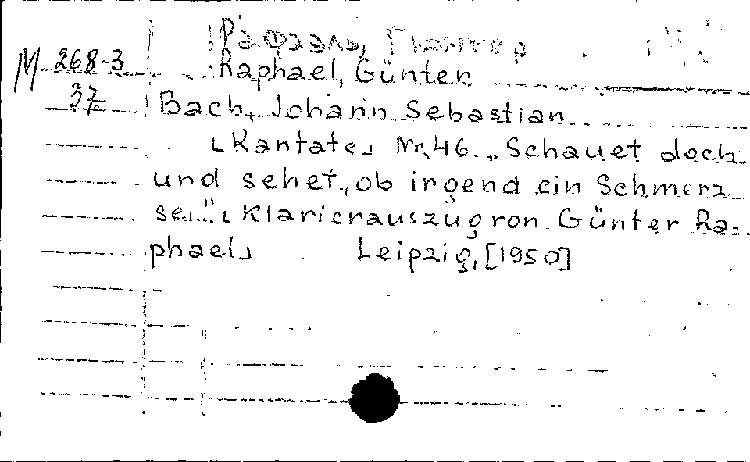 Рафаэль, Гюнтер
М 268-3 Raphael, Günter
37 Bach, Johann Sebastian
[Kantate] Nr. 46. „Schauet doch
und sehet, ob irgend ein Schmerz
sei". [Klavierauszug von Günter Ra=
phael] Leipzig, [1950]